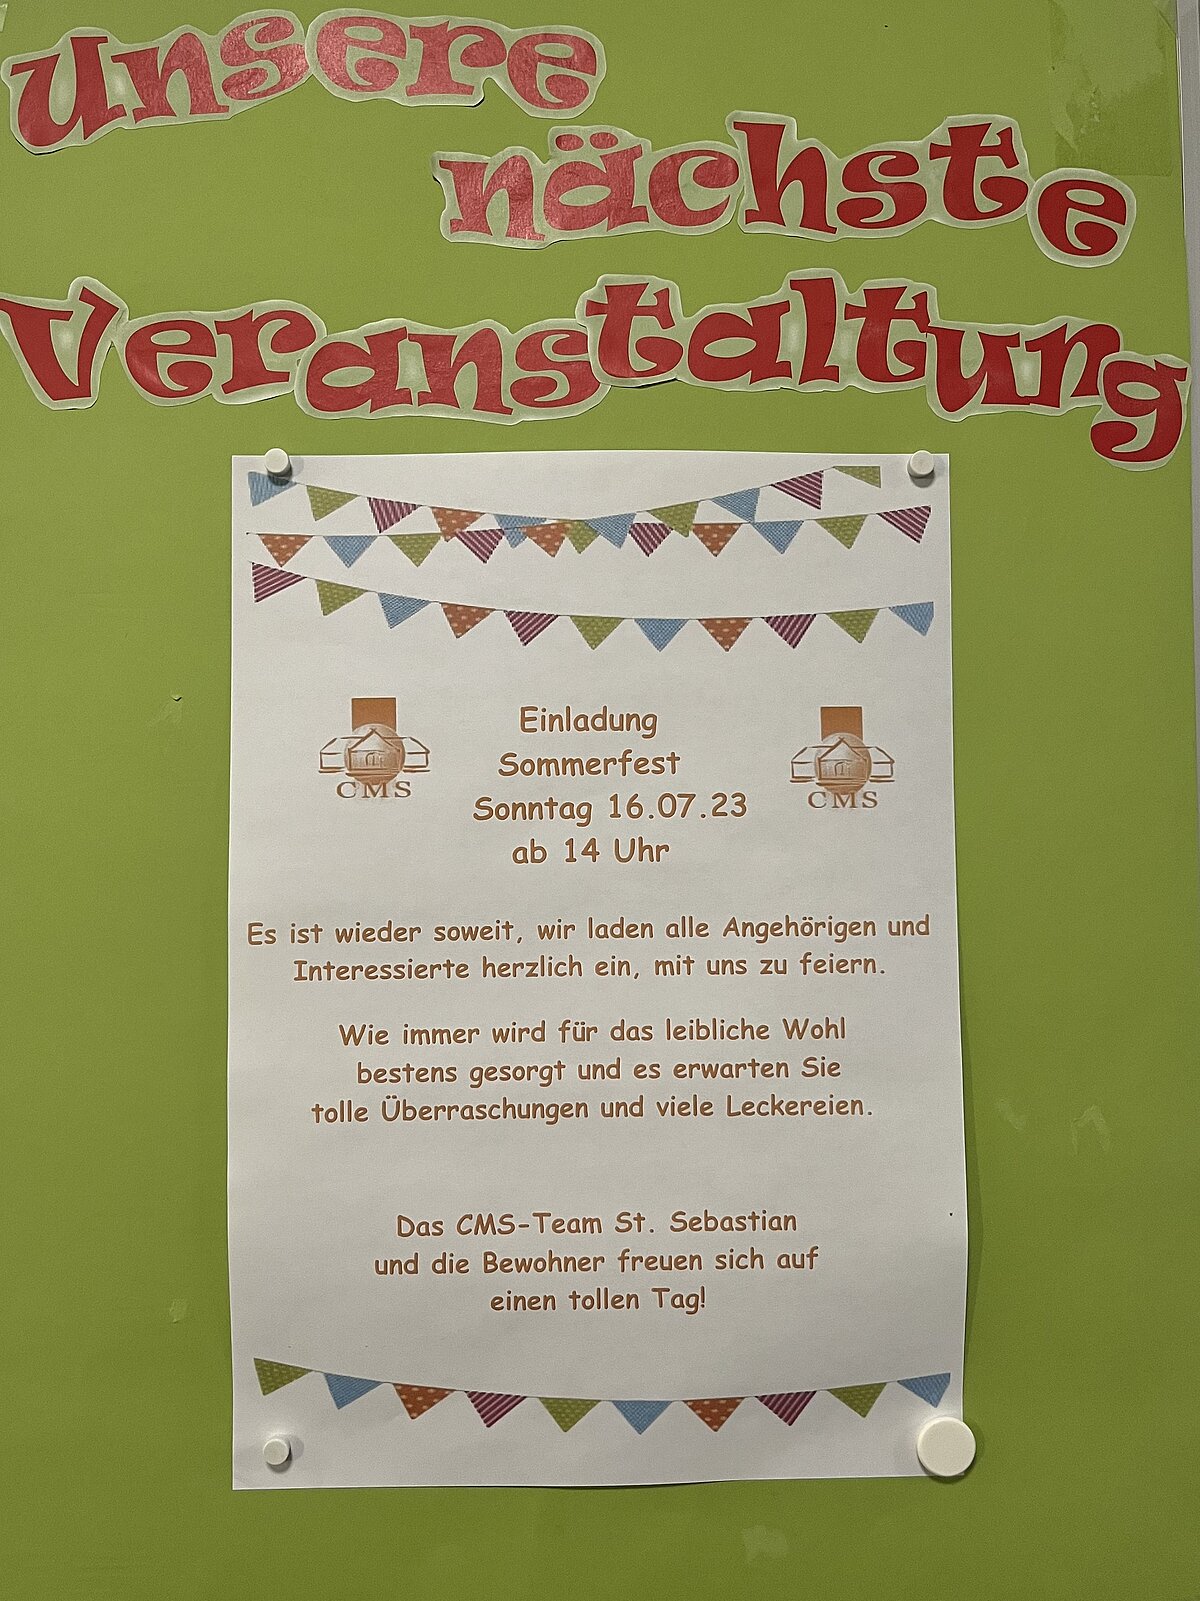 unsere
nächste
Veranstaltung
Einladung
Sommerfest
Sonntag 16.07.23
ab 14 Uhr
CMS
CMS
Es ist wieder soweit, wir laden alle Angehörigen und
Interessierte herzlich ein, mit uns zu feiern.
Wie immer wird für das leibliche Wohl
bestens gesorgt und es erwarten Sie
tolle Überraschungen und viele Leckereien.
Das CMS-Team St. Sebastian
und die Bewohner freuen sich auf
einen tollen Tag!